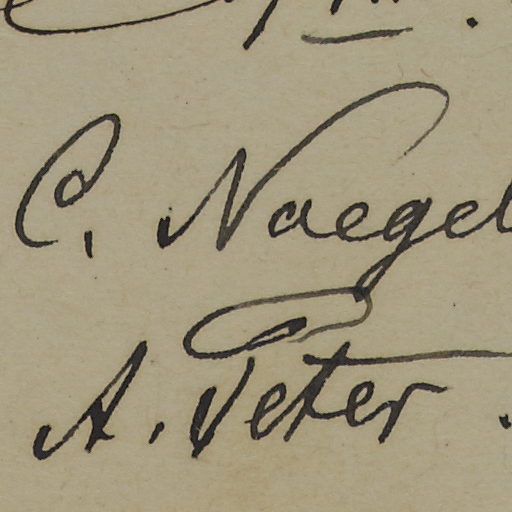 C. Naegel
A. Peter.